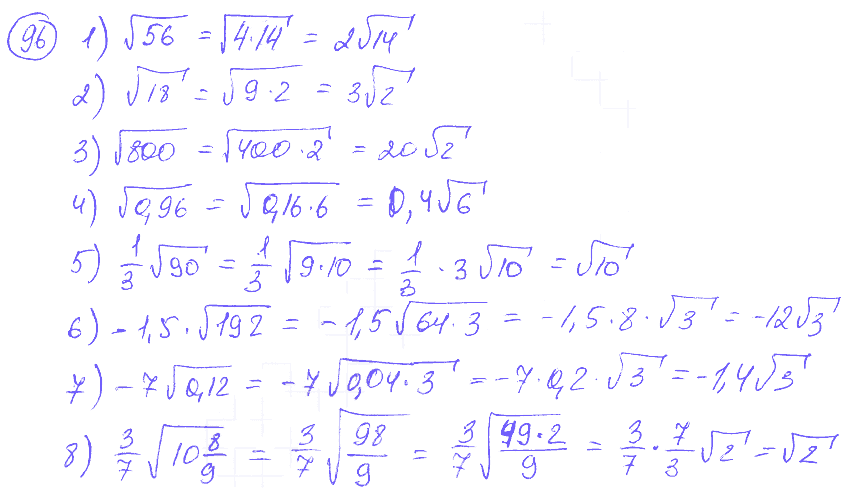 96 1) √56 = √4·14 = 2√14
2) √18 = √9·2 = 3√2
3) √800 = √400·2 = 20√2
4) √0,96 = √0,16·6 = 0,4√6
5) 1/3 √90 = 1/3 √9·10 = 1/3 · 3√10 = √10
6) -1,5·√192 = -1,5√64·3 = -1,5·8·√3 = -12√3
7) -7√0,12 = -7√0,04·3 = -7·0,2·√3 = -1,4√3
8) 3/7 √10 8/9 = 3/7 √98/9 = 3/7 √49·2/9 = 3/7 · 7/3 √2 = √2